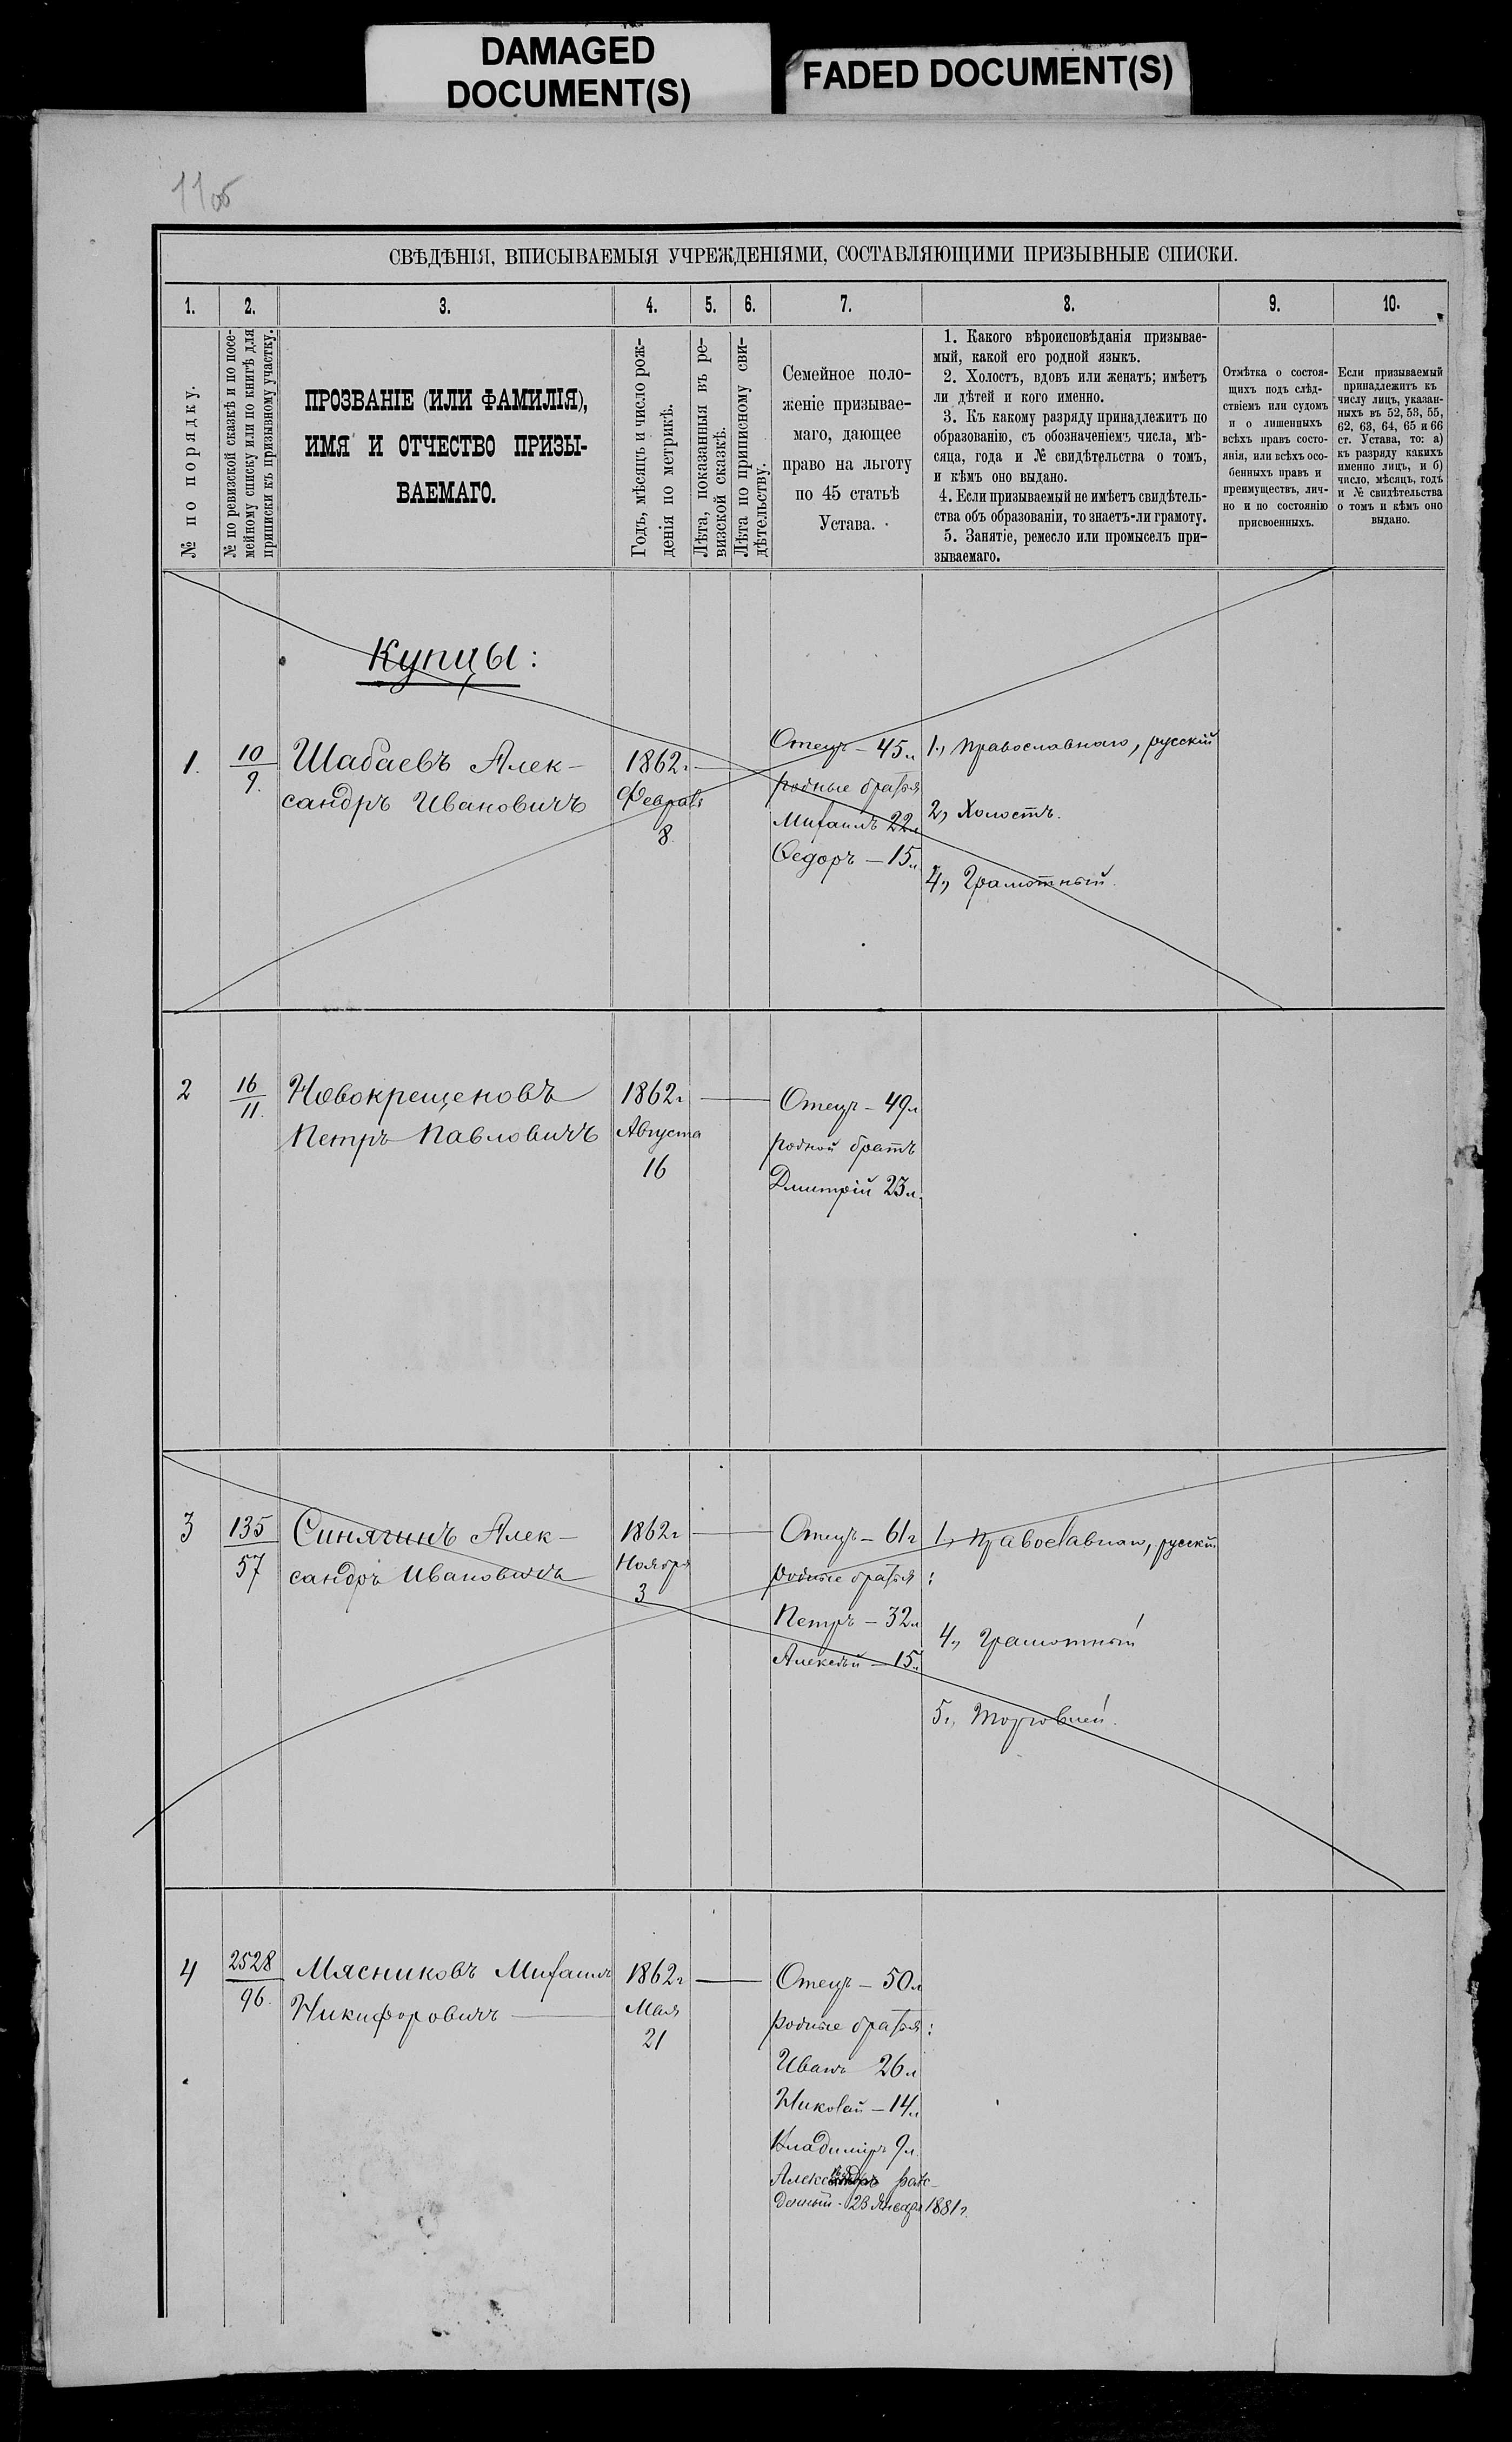 DAMAGED
DOCUMENT(S)
FADED DOCUMENT(S)
11об
СВѢДѢНІЯ, ВПИСЫВАЕМЫЯ УЧРЕЖДЕНІЯМИ, СОСТАВЛЯЮЩИМИ ПРИЗЫВНЫЕ СПИСКИ.
1. 2. 3. 4. 5. 6. 7. 8. 9. 10.
№ по порядку.
№ по ревизской сказкѣ и по посе-
мейному списку или по книгѣ для
приписки къ призывному участку.
ПРОЗВАНІЕ (ИЛИ ФАМИЛІЯ),
ИМЯ И ОТЧЕСТВО ПРИЗЫ-
ВАЕМАГО.
Годъ, мѣсяцъ и число рож-
денія по метрикѣ.
Лѣта, показанныя въ ре-
визской сказкѣ.
Лѣта по приписному сви-
дѣтельству.
Семейное поло-
женіе призывае-
маго, дающее
право на льготу
по 45 статьѣ
Устава.
1. Какого вѣроисповѣданія призывае-
мый, какой его родной языкъ.
2. Холостъ, вдовъ или женатъ; имѣетъ
ли дѣтей и кого именно.
3. Къ какому разряду принадлежитъ по
образованію, съ обозначеніемъ числа, мѣ-
сяца, года и № свидѣтельства о томъ,
и кѣмъ оно выдано.
4. Если призываемый не имѣетъ свидѣтель-
ства объ образованіи, то знаетъ-ли грамоту.
5. Занятіе, ремесло или промыселъ при-
зываемаго.
Отмѣтка о состоя-
щихъ подъ слѣд-
ствіемъ или судомъ
и о лишенныхъ
всѣхъ правъ состо-
янія, или всѣхъ осо-
бенныхъ правъ и
преимуществъ, лич-
но и по состоянію
присвоенныхъ.
Если призываемый
принадлежитъ къ
числу лицъ, указан-
ныхъ въ 52, 53, 55,
62, 63, 64, 65 и 66
ст. Устава, то: а)
къ разряду какихъ
именно лицъ, и б)
число, мѣсяцъ, годъ
и № свидѣтельства
о томъ и кѣмъ оно
выдано.
Купцы:
1.
10
9.
Шабаевъ Алек-
сандръ Ивановичъ
1862г
Февраля
8.
Отецъ – 45л
родные братья
Михаилъ 22л
Ѳедоръ – 15л
1., Православнаго, русскій
2, Холостъ.
4, Грамотный.
2
16
11.
Новокрещеновъ
Петръ Павловичъ
1862г
Августа
16
Отецъ – 49л
родной братъ
Дмитрій 23л.
3
135
57
Синягинъ Алек-
сандръ Ивановичъ
1862г
Ноября
3
Отецъ – 61г
родные братья:
Петръ – 32л
Алексѣй – 15л
1, Православнаго, русскій
4, Грамотный
5, Торговлей.
4
2528
96.
Мясниковъ Михаилъ
Никифоровичъ
1862г
Мая
21
Отецъ – 50л
родные братья:
Иванъ 26л
Николай – 14л
Владиміръ 9л
рож-
денный 23 Января 1881г.